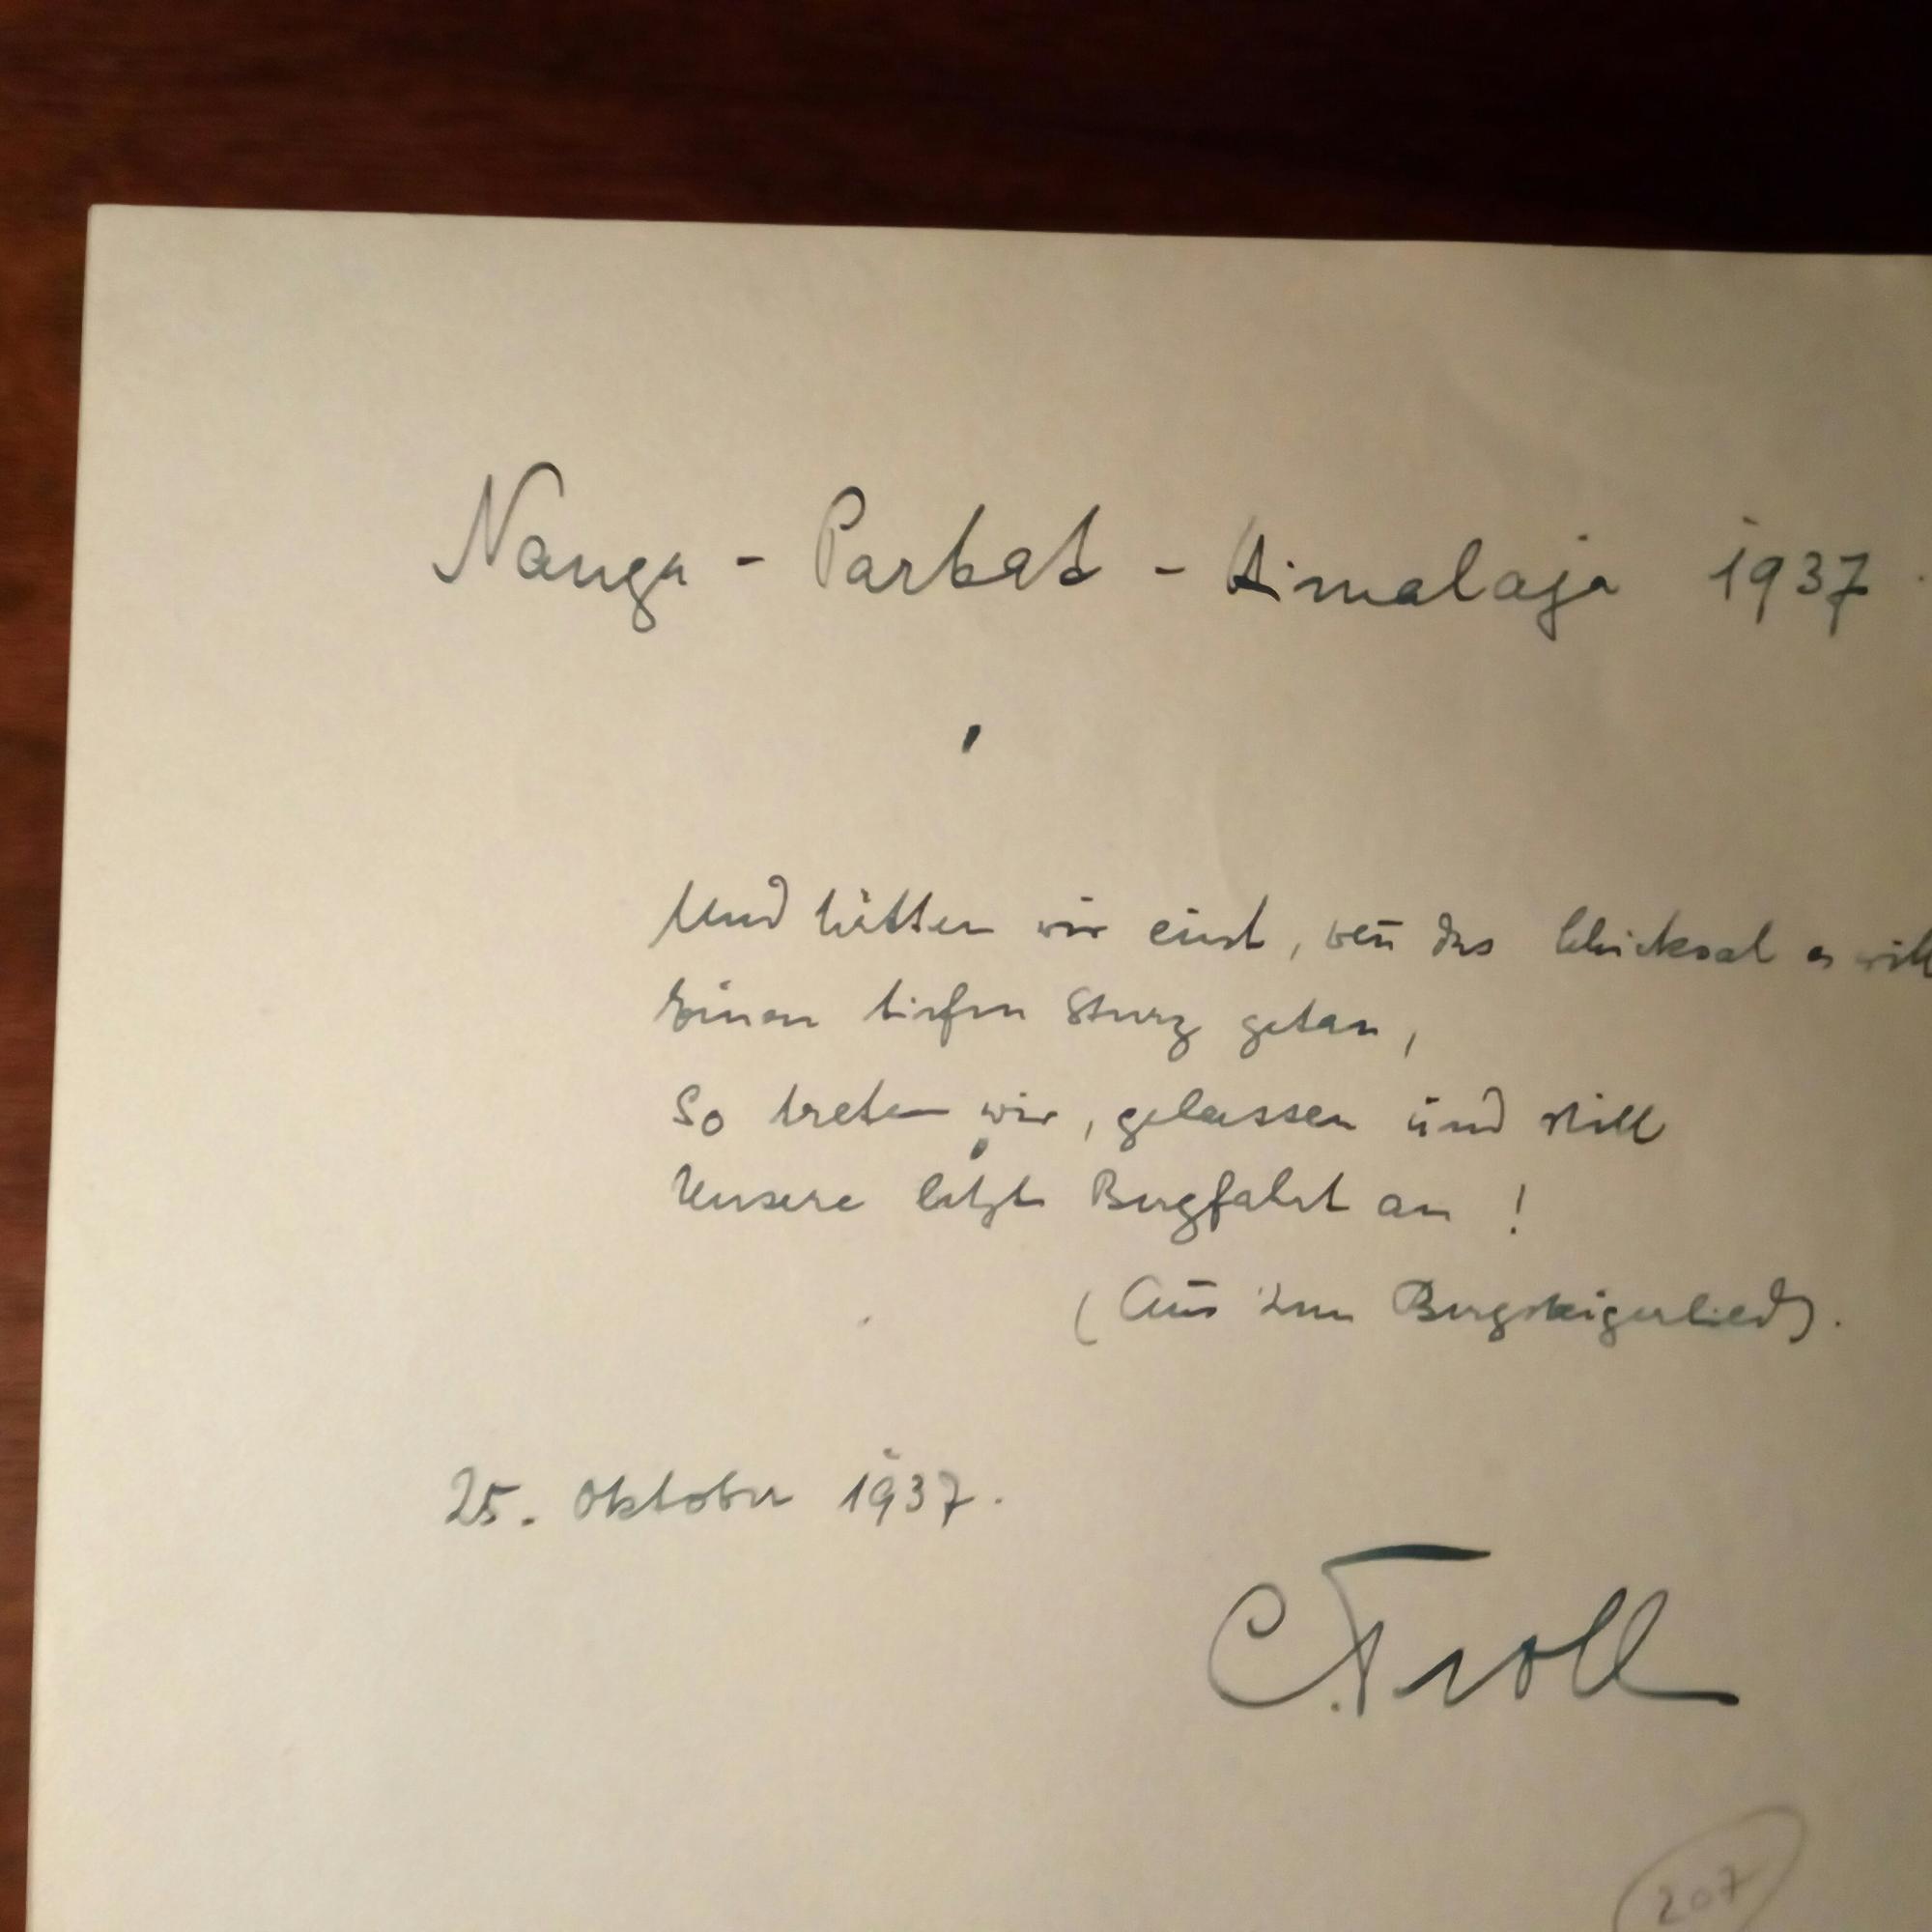 Nanga - Parbat - Himalaja 1937.
Und hätten wir einst, wen̄ das Schicksal es will
Einen tiefen Sturz getan,
So treten wir, gelassen und still
Unsere letzte Bergfahrt an !
(Aus dem Bergsteigerlied).
25. Oktober 1937.
C. Troll
207